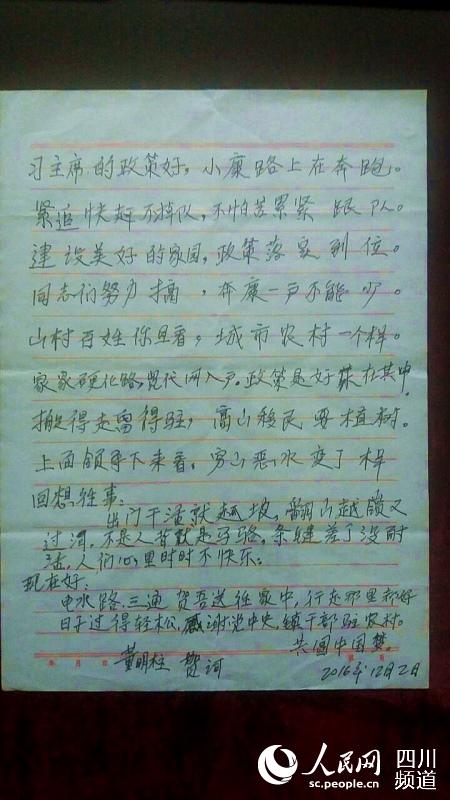 习主席的政策好，小康路上在奔跑。
紧追快赶不掉队，不怕苦累紧跟队。
建设美好的家园，政策落实到位。
同志们努力搞，奔康一户不能少。
山村百姓你且看，城市农村一个样。
家家硬化路 光代网入户.政策是好 在其中.
搬得走留得驻，高山移民要植树.
上面领导下来看，穷山恶水变了样
回想往事：
出门干活就越坡，翻山越岭又
过河.不是人背就是马驼，条件差了没耐
法，人们心里时时不快乐：
现在好：
电水路.三通 送往家中，行走那里都好
日子过得轻松，感谢党中央，镇干部驻农村.
共圆中国梦。
年 月 日 第 页
董明柱 贺词
2016年12月2日
人民网 四川频道
sc.people.com.cn